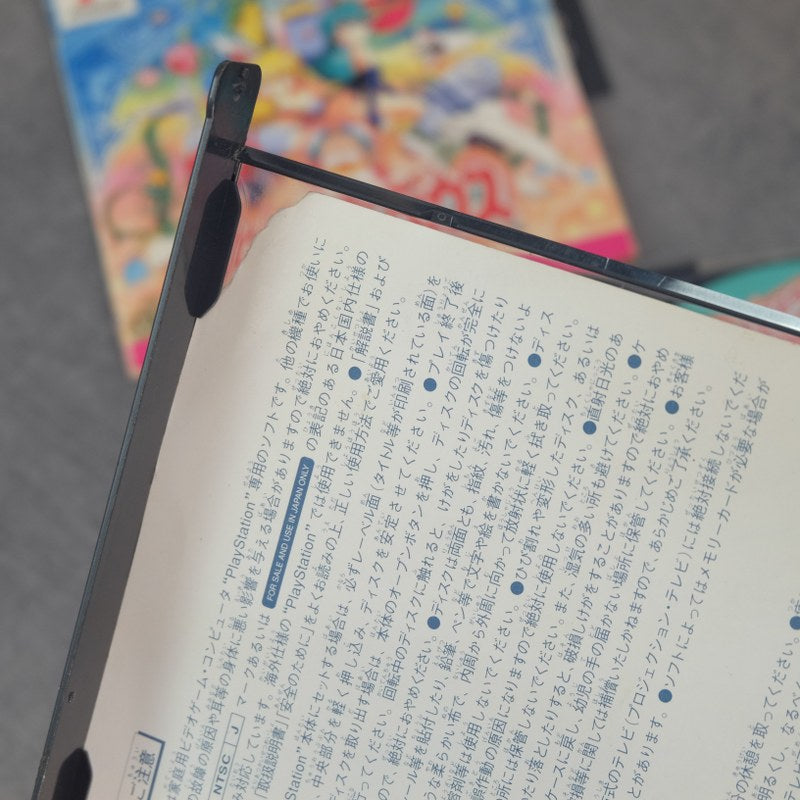 ご注意
は家庭用ビデオゲーム・コンピュータ "PlayStation" 専用のソフトです。他の機種でお使いに
の故障の原因や耳等の身体に悪い影響を与える場合がありますので絶対におやめください。
NTSC J マークあるいは FOR SALE AND USE IN JAPAN ONLY の表記のある日本国内仕様の
み対応しています。海外仕様の "PlayStation" では使用できません。●「解説書」および
「取扱説明書」「安全のために」をよくお読みの上、正しい使用方法でご愛用ください。
Station" 本体にセットする場合は、必ずレーベル面(タイトル等が印刷されている面)を
中央部分を軽く押し込み、ディスクを安定させてください。●プレイ終了後
ィスクを取り出す場合は、本体のオープンボタンを押し、ディスクの回転が完全に
行ってください。回転中のディスクに触れると、けがをしたりディスクを傷つけたり
ので、絶対におやめください。●ディスクは両面とも、指紋、汚れ、傷等をつけないよ
ール等を貼付したり、鉛筆、ペン等で文字や絵を書かないでください。●ディス
うな柔らかい布で、内周から外周に向かって放射状に軽く拭き取ってください。
溶剤等は使用しないでください。●ひび割れや変形したディスク、あるいは
誤作動の原因になりますので絶対に使用しないでください。●直射日光のあ
所には保管しないでください。また、湿気の多い所も避けてください。●ケ
たり落としたりすると、破損しけがをすることがありますので絶対におやめ
ケースに戻し、幼児の手の届かない場所に保管してください。●お客様
損等に関しては補償いたしかねますので、あらかじめご了承ください。
式のテレビ(プロジェクション・テレビ)には絶対接続しないでくだ
とがあります。●ソフトによってはメモリーカードが必要な場合が
の休憩を取ってください。
明るくし、なるべ